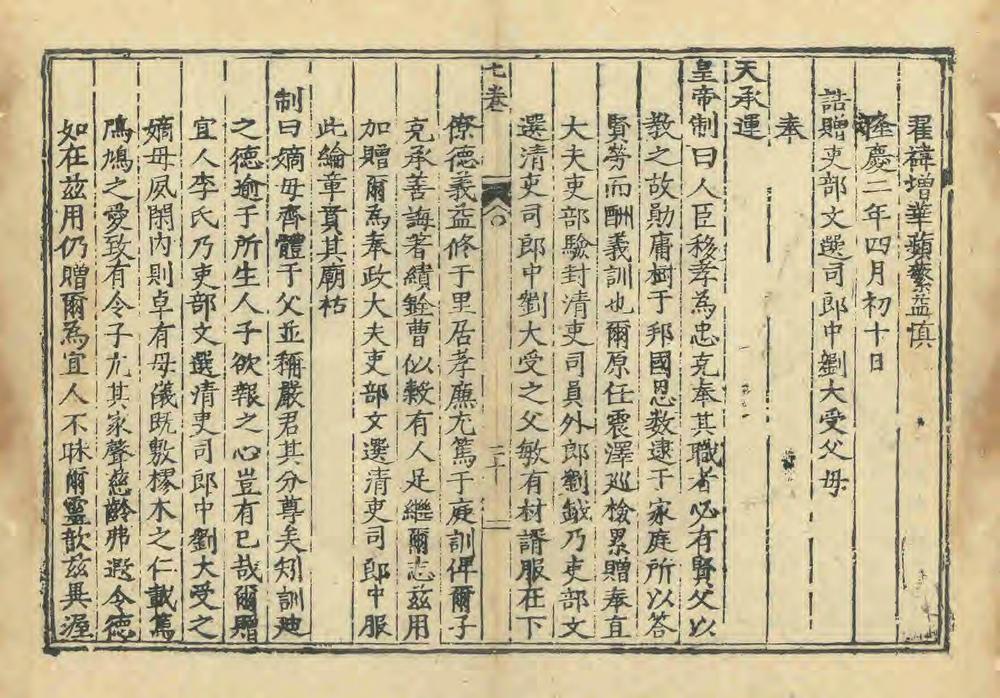 翟褘增華蘋蘩益慎
隆慶二年四月初十日
誥贈吏部文選司郎中劉大受父母
奉
天承運
皇帝制曰人臣移孝為忠克奉其職者必有賢父以
教之故勛庸樹于邦國恩数逮于家庭所以答
賢勞而酬義訓也爾原任震澤巡檢累贈奉直
大夫吏部驗封清吏司員外郎劉鉞乃吏部文
選清吏司郎中劉大受之父敏有材諝服在下
七卷
二十
僚德義益修于里居孝廉尤篤于庭訓俾爾子
克承善誨著績銓曹似穀有人足繼爾志茲用
加贈爾為奉政大夫吏部文選清吏司郎中服
此綸章賁其廟祏
制曰嫡母齊體于父並稱嚴君其分尊矣矧訓迪
之德逾于所生人子欲報之心豈有已哉爾贈
宜人李氏乃吏部文選清吏司郎中劉大受之
嫡母夙閑內則卓有母儀既敷樛木之仁載篤
鳲鳩之愛致有令子亢其家聲慈齡弗遐令德
如在茲用仍贈爾為宜人不昧爾靈歆茲異渥